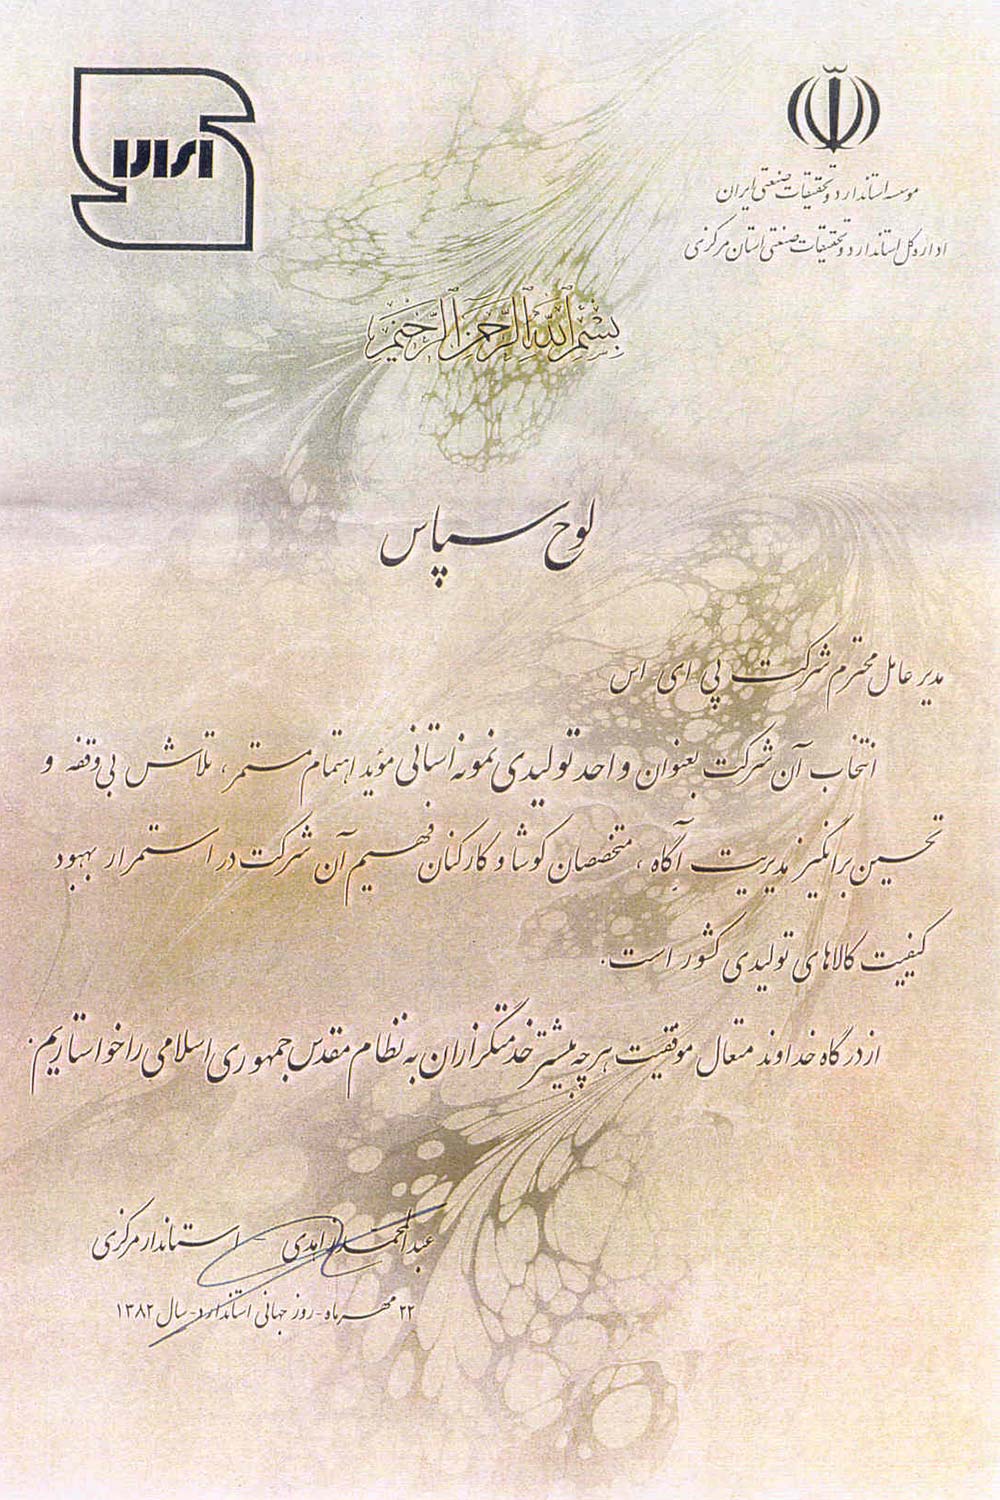 ایران
موسسه استاندارد و تحقیقات صنعتی ایران
اداره کل استاندارد و تحقیقات صنعتی استان مرکزی
بسم الله الرحمن الرحیم
لوح سپاس
مدیر عامل محترم شرکت پی ای اس
انتخاب آن شرکت بعنوان واحد تولیدی نمونه استانی مؤید اهتمام مستمر، تلاش بی وقفه و
تحسین برانگیز مدیریت آگاه ، متخصصان کوشا و کارکنان فهیم آن شرکت در استمرار بهبود
کیفیت کالاهای تولیدی کشور است.
از درگاه خداوند متعال موفقیت هر چه بیشتر خدمتگزاران به نظام مقدس جمهوری اسلامی را خواستاریم.
عبدالمحمد زاهدی استاندار مرکزی
۲۲ مهر ماه - روز جهانی استاندارد - سال ۱۳۸۲